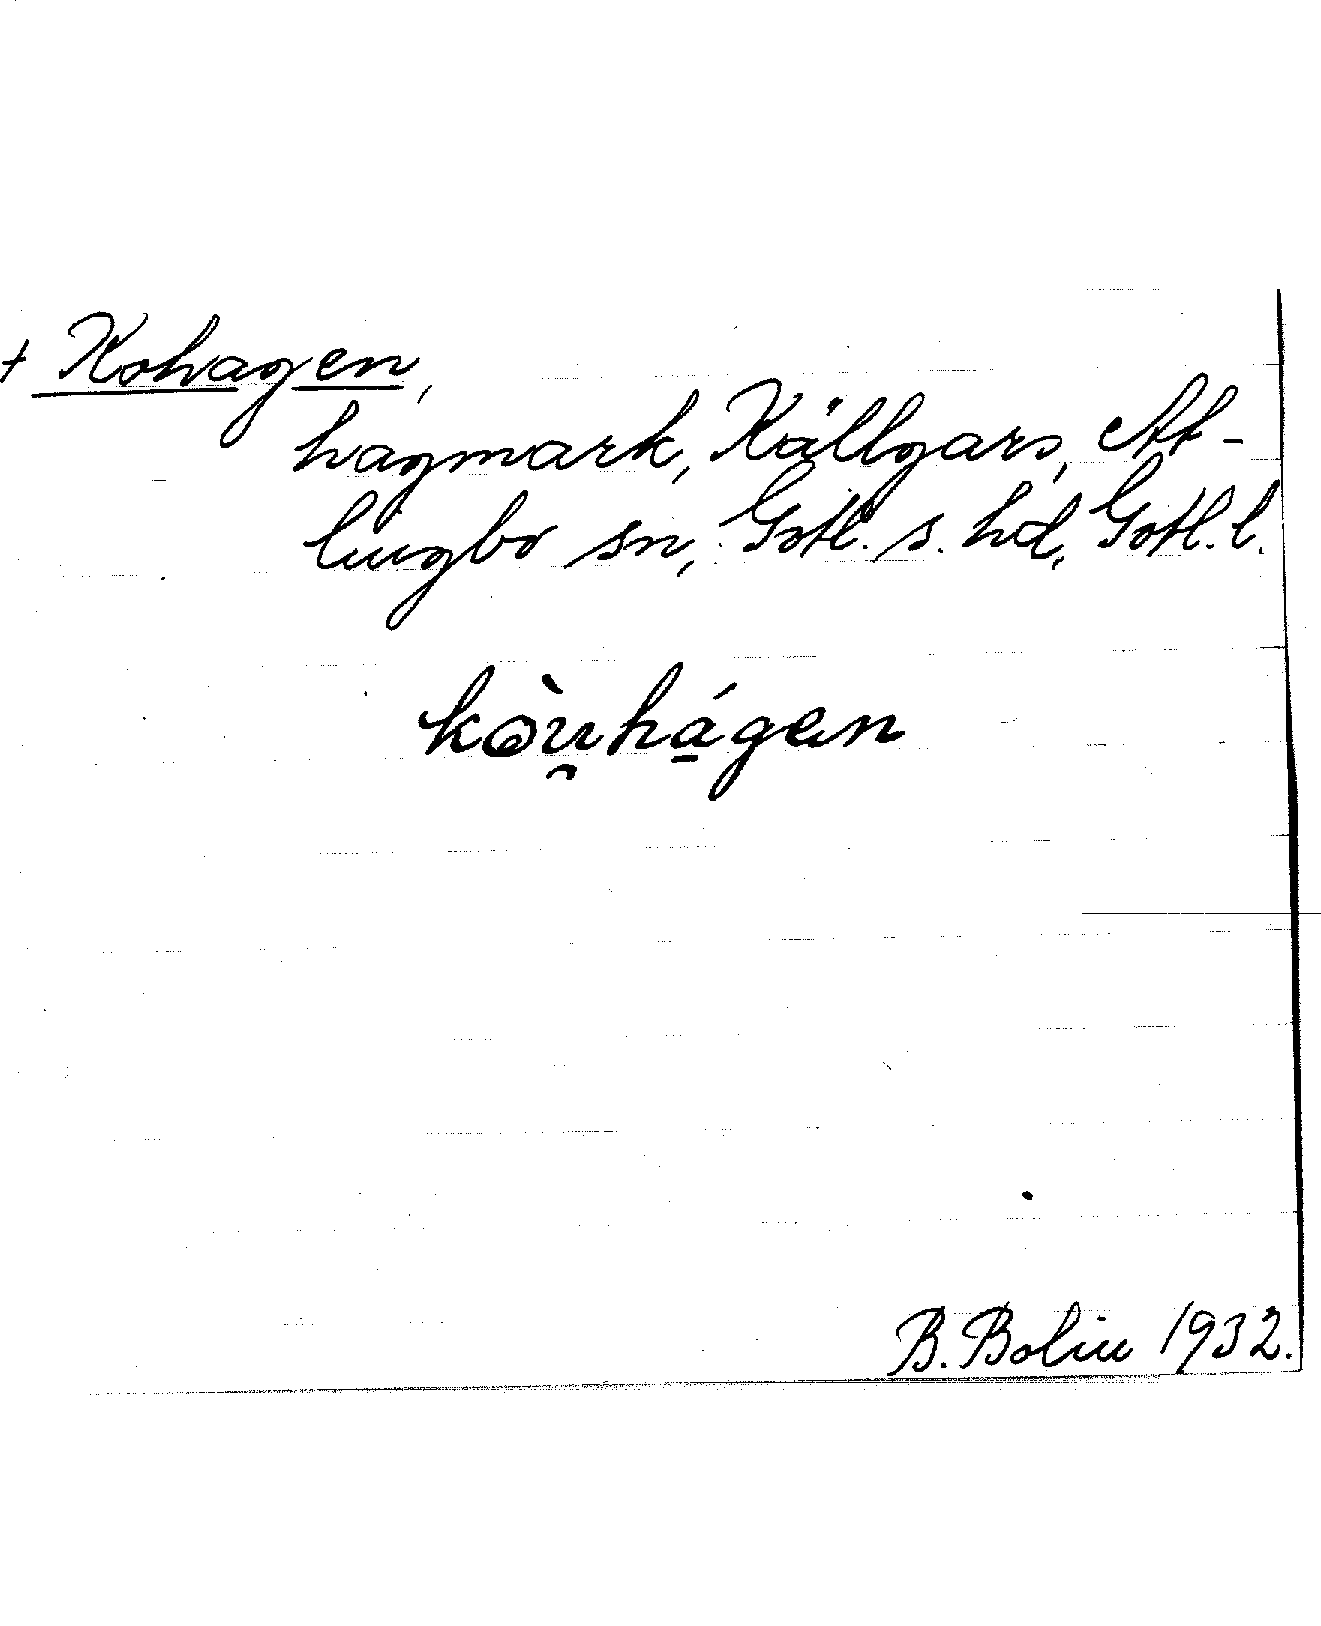 + Kohagen,
hagmark, Källgars, At-
lingbo sn, Gotl. s. hd, Gotl. l.
kòu̯há̱gen
B. Bolin 1932.